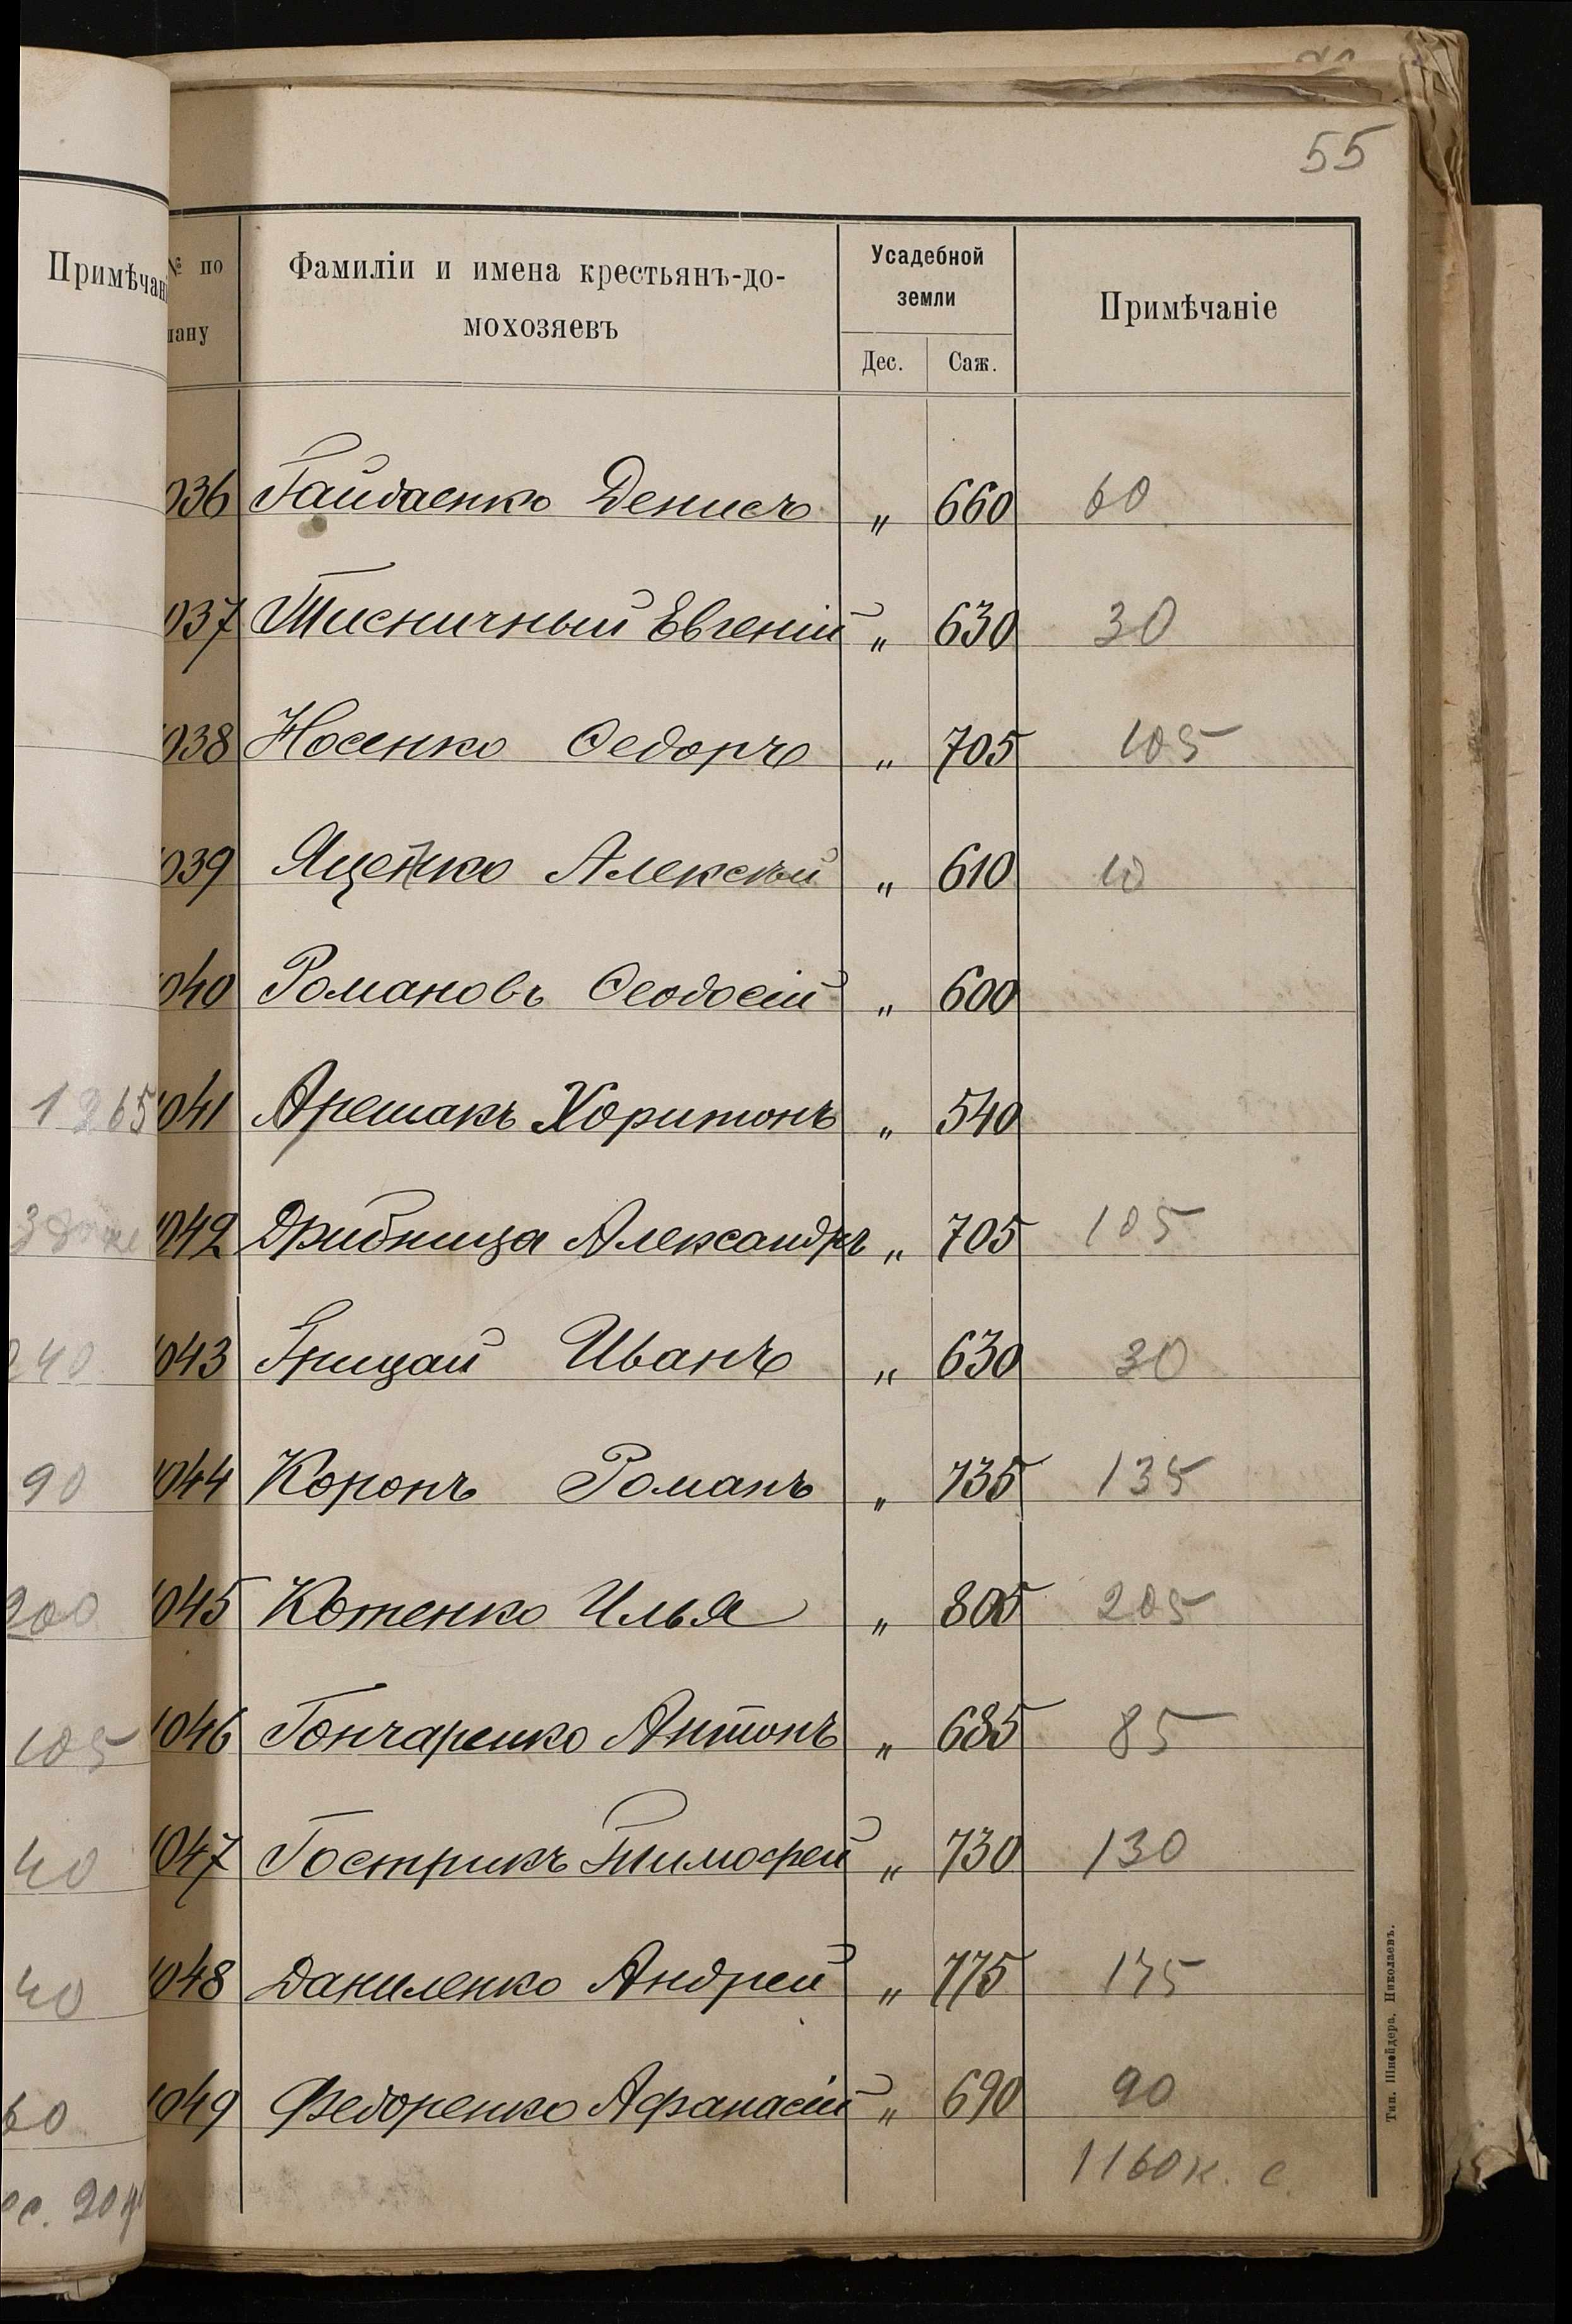 55
Примѣчан
№ по
лану
Фамиліи и имена крестьянъ-до-
мохозяевъ
Усадебной
земли
Дес.
Саж.
Примѣчаніе
036 Гайдаенко Денисъ " 660 60
037 Тисничный Евгеній " 630 30
038 Носенко Ѳедоръ " 705 105
039 Яценко Алексѣй " 610 10
040 Романовъ Ѳеодосій " 600
1265
041 Арешакъ Хоритонъ " 540
1042 Дрибница Александръ " 705 105
240
1043 Грицай Иванъ " 630 30
90
1044 Коронъ Романъ " 735 135
200
1045 Котенко Илья " 805 205
105
1046 Гончаренко Антонъ " 685 85
40
1047 Гострикъ Тимофей " 730 130
40
1048 Даниленко Андрей " 775 175
60
1049 Федоренко Афанасій " 690 90
1160 к. с.
Тип. Шнейдера, Николаевъ.